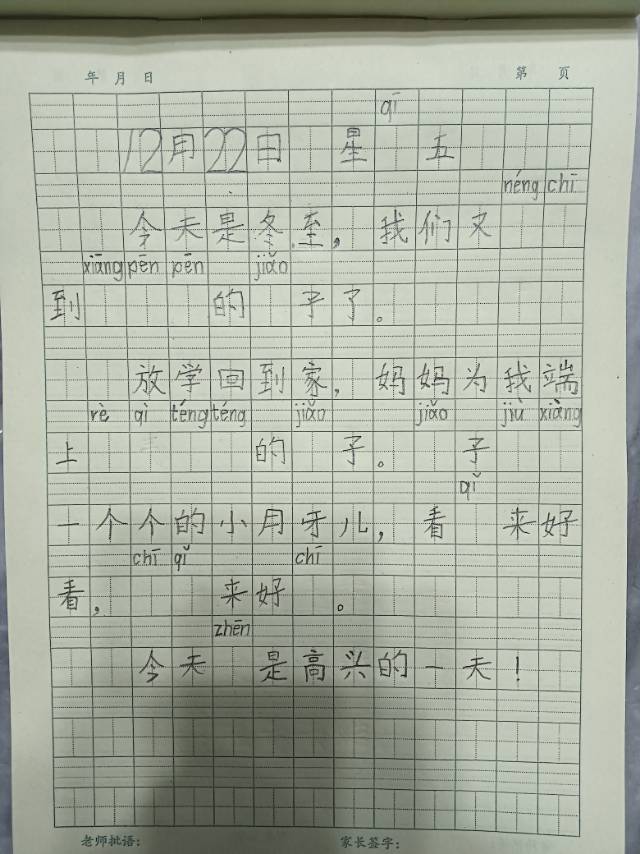 年 月 日 第 页
qī
12月22日 星 五
néng chī
今天是冬至，我们又
xiāng pēn pēn jiǎo
到 的 子了。
放学回到家，妈妈为我端
rè qì téng téng jiǎo jiǎo jiù xiàng
上 的 子。 子
qǐ
一个个的小月牙儿，看 来好
chī qǐ chī
看， 来好 。
zhēn
今天 是高兴的一天！
老师批语： 家长签字：